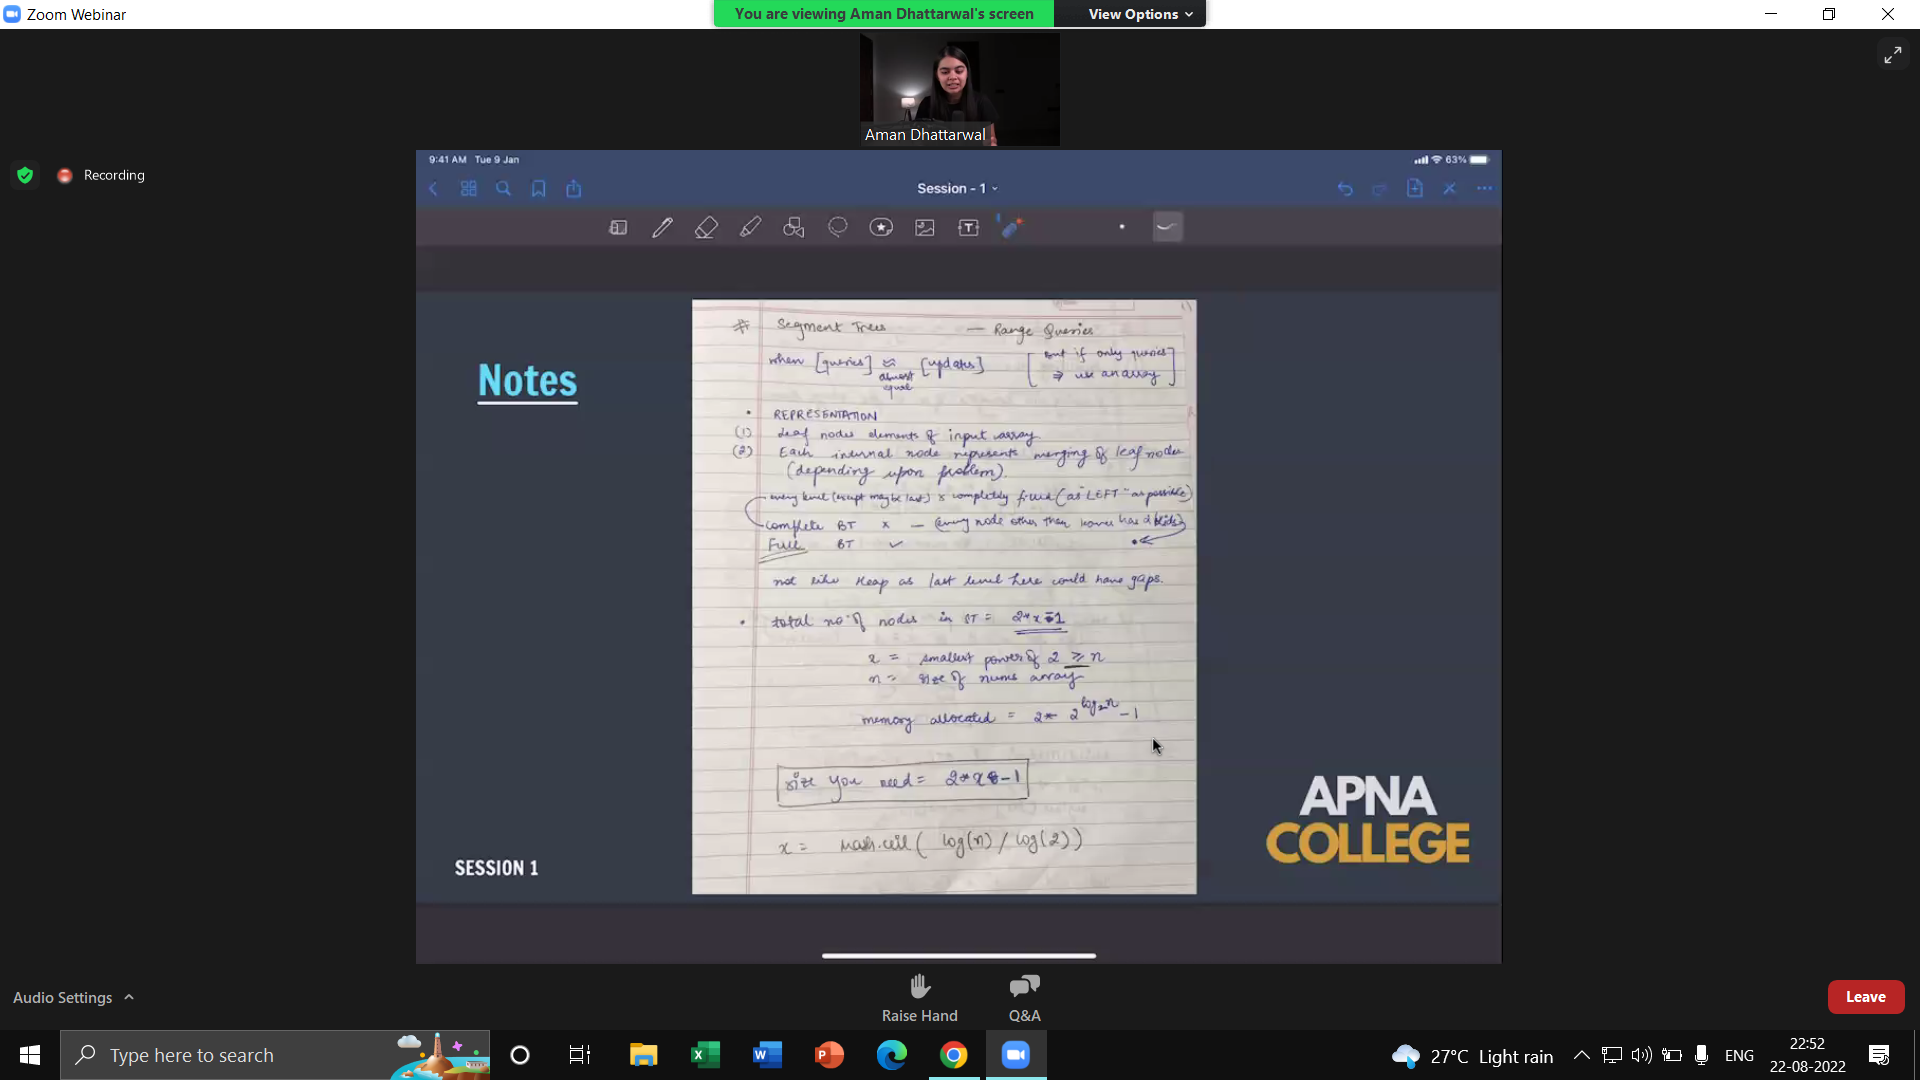 Zoom Webinar
You are viewing Aman Dhattarwal's screen
View Options
Aman Dhattarwal
Recording
9:41 AM Tue 9 Jan
63%
Session - 1
Notes
# Segment Trees — Range Queries
when [queries] ≈ [updates] [But if only queries
almost equal ⇒ use an array]
• REPRESENTATION
(1) Leaf nodes elements of input array
(2) Each internal node represents merging of leaf nodes
(depending upon problem).
every level (except maybe last) is completely filled (as "LEFT" as possible)
complete BT × — (every node other than leaves has 2
Full BT ✓
not like Heap as last level here could have gaps.
• total no. of nodes in ST = 2* x -1
x = smallest power of 2 ≥ n
n = size of nums array
memory allocated = 2* 2^log₂n - 1
size you need = 2*x -1
x = Math.ceil( log(n) / log(2))
SESSION 1
APNA
COLLEGE
Audio Settings
Raise Hand
Q&A
Leave
Type here to search
27°C Light rain
ENG
22:52
22-08-2022